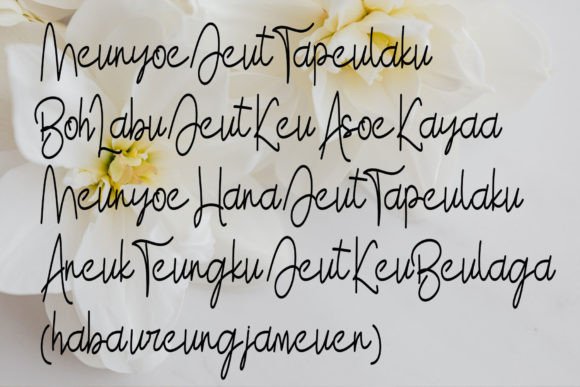 Meunyoe Jeut Tapeulaku
Boh Labu Jeut Keu Asoe Kayaa
Meunyoe Hana Jeut Tapeulaku
Aneuk Teungku Jeut Keu Beulaga
(haba ureung jameuen)